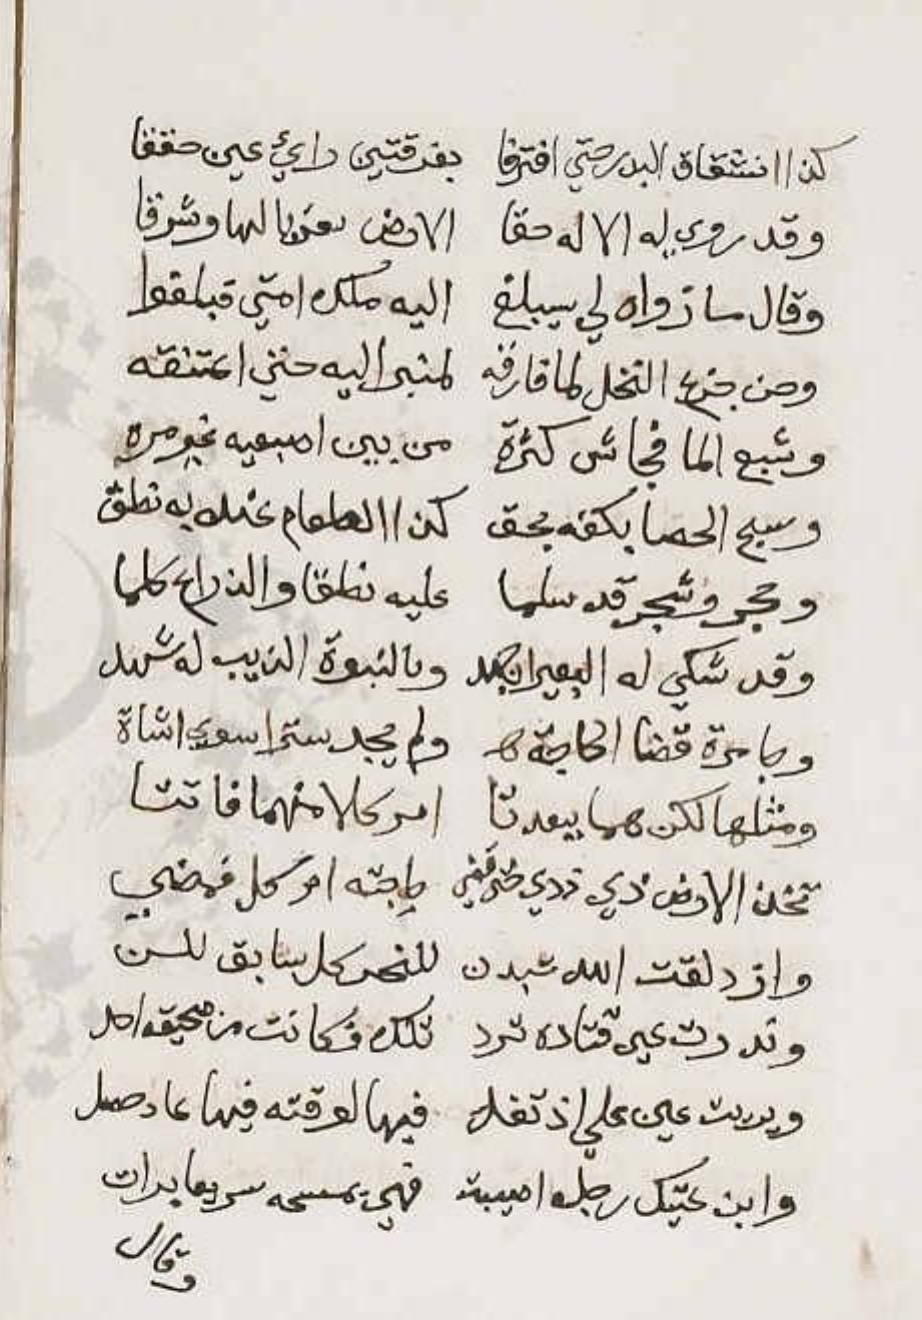 كذا انشقاق البدر حتي افترقا بفرقتين رايُ عين حققا
وقد روي له الاله حقا الارض مغربا لها وشرقا
وقال ما زواه لي سيبلغ اليه ملك امتي فبلغوا
وحن جذع النخل لما فارقه لمنبر اليه حتي اعتنقه
ونبع الما فجاش كثرة من بين اصبعيه غير مرة
وسبح الحصا بكفه بحق كذا الطعام عنده به نطق
وحجر وشجر قد سلما عليه نطقا والذراع كلما
وقد شكي له البعير وبالنبوة الذيب له شهد
وجا مرة قضا الحاجة ولم يجد سترا سوي اشاة
ومثلها لكن هما بعدتا امر كلا منهما فاتتا
تخذ الارض ذي وذي حتي قضي حاجته امر كل فمضي
وازدلفت اليه ست بدن للنحر كل سابق للسن
وندرت عين قتاده فرد تلك فكانت من صحيحة احد
وبريت عين علي اذ تفل فيها لوقته فيها عاد حصل
وابن عتيك رجله اصيبت فهي بمسحه سريعا برات
وقال